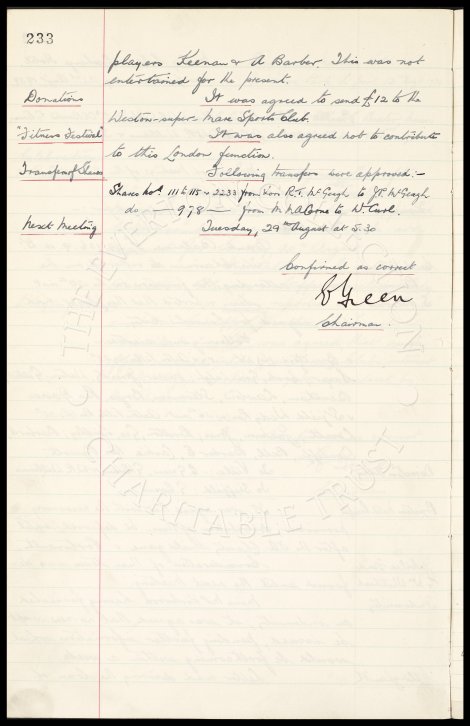 233
players Keenan & A Barber. This was not
entertained for the present.
Donations It was agreed to send £12 to the
Weston-super-Mare Sports Club.
"Fitness Festival" It was also agreed not to contribute
to this London function.
Transfer of Shares Following transfers were approved :-
Shares Nos 111 to 115 & 2233 from R.T. McGeagh to J.P. McGeagh
do — 978 — from M. to W. Curl.
Next Meeting Tuesday, 29th August at 5.30
Confirmed as correct
E Green
Chairman.
THE EVERTON
CHARITABLE TRUST